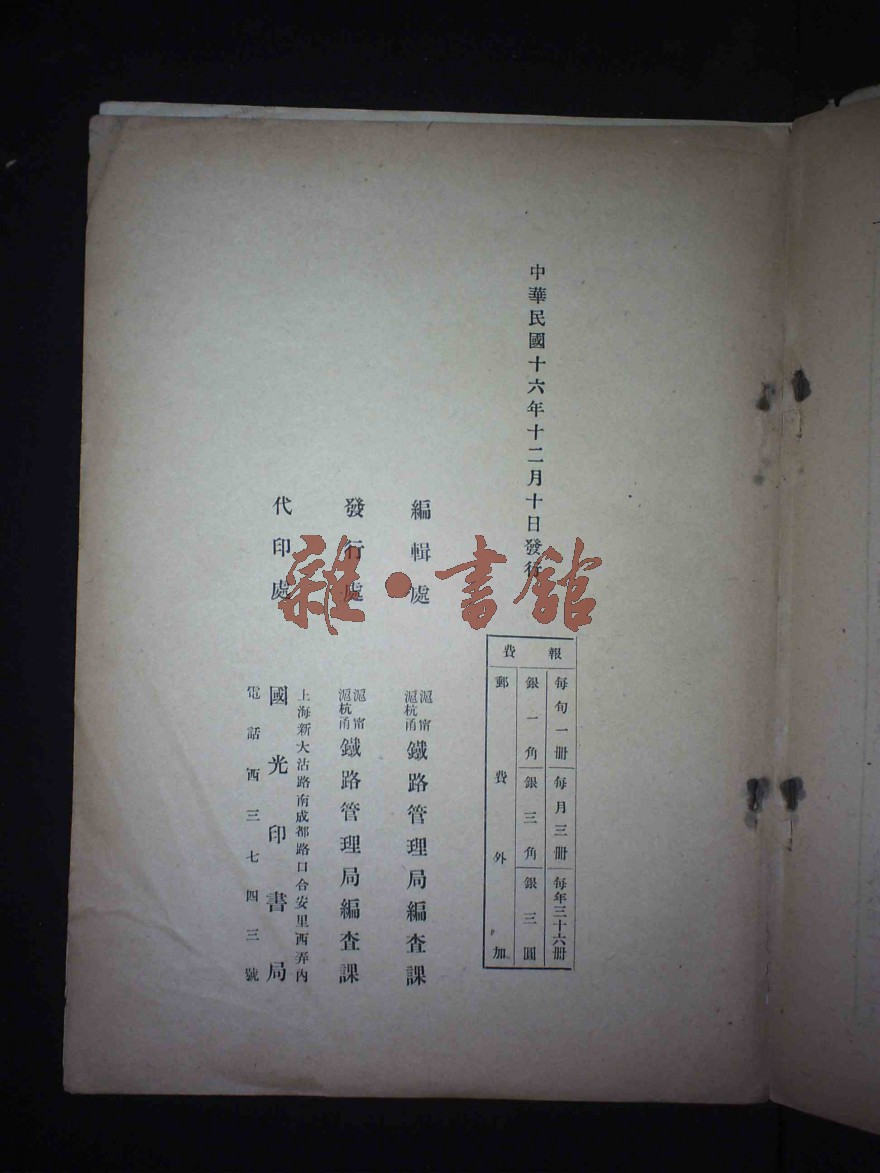 中華民國十六年十二月十日發行
報費
每旬一册 每月三册 每年三十六册
銀一角 銀三角 銀三圓
郵費外加
編輯處 滬甯滬杭甬鐵路管理局編查課
發行處 滬甯滬杭甬鐵路管理局編查課
代印處
上海新大沽路南成都路口合安里西弄內
國光印書局
電話西三七四三號
雜·書館